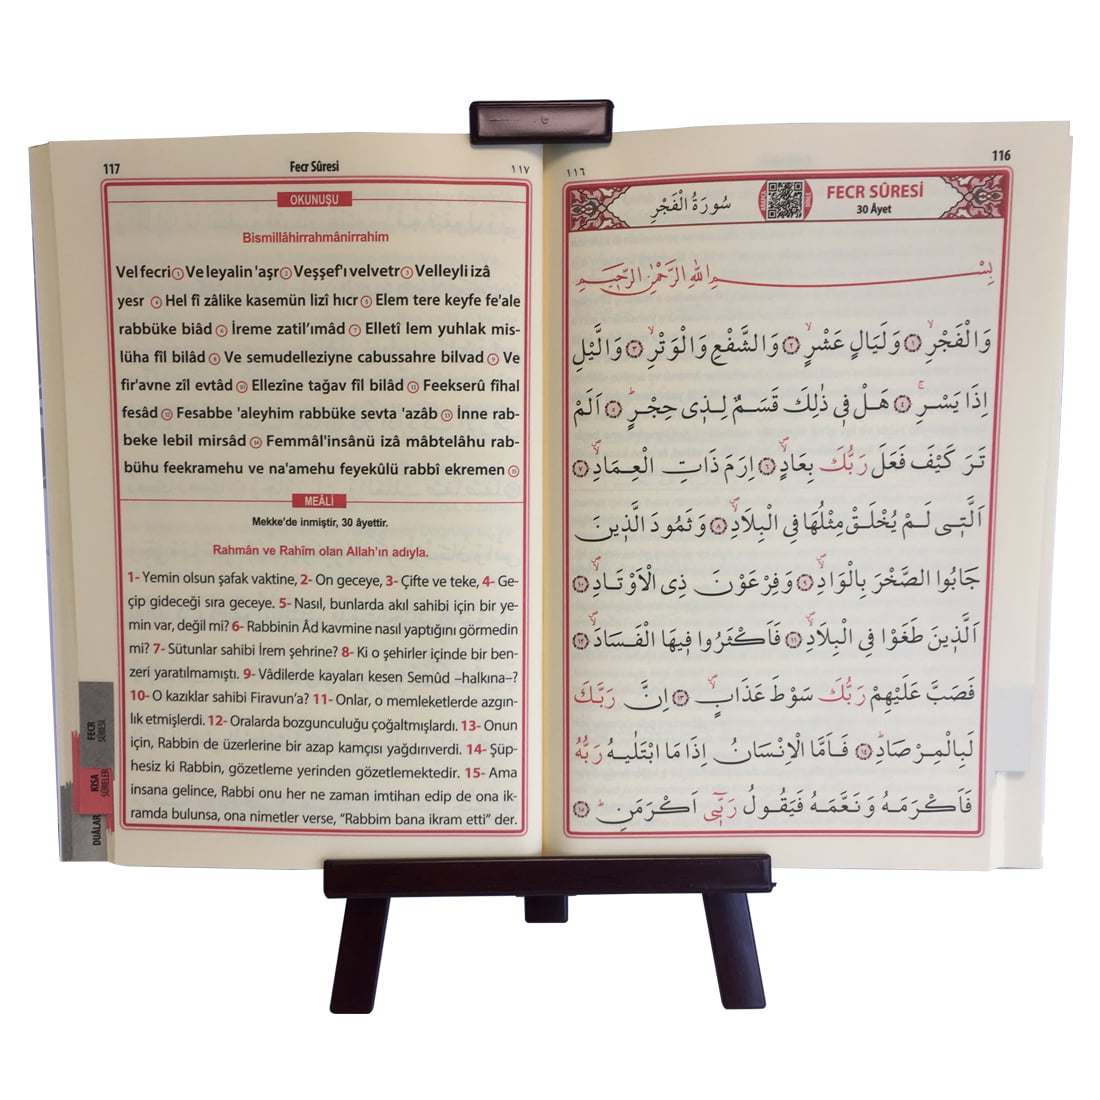 116
١١٦
FECR SÛRESİ
30 Âyet
سُورَةُ الْفَجْرِ
بِسْمِ اللّٰهِ الرَّحْمٰنِ الرَّحٖيمِ
وَالْفَجْرِۙ ﴿١﴾ وَلَيَالٍ عَشْرٍۙ ﴿٢﴾ وَالشَّفْعِ وَالْوَتْرِۙ ﴿٣﴾ وَالَّيْلِ
اِذَا يَسْرِۚ ﴿٤﴾ هَلْ فٖي ذٰلِكَ قَسَمٌ لِذٖي حِجْرٍؕ ﴿٥﴾ اَلَمْ
تَرَ كَيْفَ فَعَلَ رَبُّكَ بِعَادٍۙ ﴿٦﴾ اِرَمَ ذَاتِ الْعِمَادِۙ ﴿٧﴾
اَلَّتٖي لَمْ يُخْلَقْ مِثْلُهَا فِي الْبِلَادِۙ ﴿٨﴾ وَثَمُودَ الَّذٖينَ
جَابُوا الصَّخْرَ بِالْوَادِۙ ﴿٩﴾ وَفِرْعَوْنَ ذِي الْاَوْتَادِۙ ﴿١٠﴾
اَلَّذٖينَ طَغَوْا فِي الْبِلَادِۙ ﴿١١﴾ فَاَكْثَرُوا فٖيهَا الْفَسَادَۙ ﴿١٢﴾
فَصَبَّ عَلَيْهِمْ رَبُّكَ سَوْطَ عَذَابٍۙ ﴿١٣﴾ اِنَّ رَبَّكَ
لَبِالْمِرْصَادِؕ ﴿١٤﴾ فَاَمَّا الْاِنْسَانُ اِذَا مَا ابْتَلٰيهُ رَبُّهُ
فَاَكْرَمَهُ وَنَعَّمَهُ فَيَقُولُ رَبّٖٓي اَكْرَمَنِؕ ﴿١٥﴾
117
Fecr Sûresi
١١٧
OKUNUŞU
Bismillâhirrahmânirrahim
Vel fecri 1 Ve leyalin 'aşr 2 Veşşef'ı velvetr 3 Velleyli izâ
yesr 4 Hel fî zâlike kasemün lizî hıcr 5 Elem tere keyfe fe'ale
rabbüke biâd 6 İreme zatil'ımâd 7 Elletî lem yuhlak mis-
lüha fîl bilâd 8 Ve semudelleziyne cabussahre bilvad 9 Ve
fir'avne zîl evtâd 10 Ellezîne tağav fîl bilâd 11 Feekserû fîhal
fesâd 12 Fesabbe 'aleyhim rabbüke sevta 'azâb 13 İnne rab-
beke lebil mirsâd 14 Femmâl'insânü izâ mâbtelâhu rab-
bühu feekramehu ve na'amehu feyekûlü rabbî ekremen 15
MEÂLİ
Mekke'de inmiştir, 30 âyettir.
Rahmân ve Rahîm olan Allah'ın adıyla.
1- Yemin olsun şafak vaktine, 2- On geceye, 3- Çifte ve teke, 4- Ge-
çip gideceği sıra geceye. 5- Nasıl, bunlarda akıl sahibi için bir ye-
min var, değil mi? 6- Rabbinin Âd kavmine nasıl yaptığını görmedin
mi? 7- Sütunlar sahibi İrem şehrine? 8- Ki o şehirler içinde bir ben-
zeri yaratılmamıştı. 9- Vâdilerde kayaları kesen Semûd –halkına–?
10- O kazıklar sahibi Firavun'a? 11- Onlar, o memleketlerde azgın-
lık etmişlerdi. 12- Oralarda bozgunculuğu çoğaltmışlardı. 13- Onun
için, Rabbin de üzerlerine bir azap kamçısı yağdırıverdi. 14- Şüp-
hesiz ki Rabbin, gözetleme yerinden gözetlemektedir. 15- Ama
insana gelince, Rabbi onu her ne zaman imtihan edip de ona ik-
ramda bulunsa, ona nimetler verse, "Rabbim bana ikram etti" der.
FECR
SÛRESİ
KISA
SÛRELER
DUÂLAR